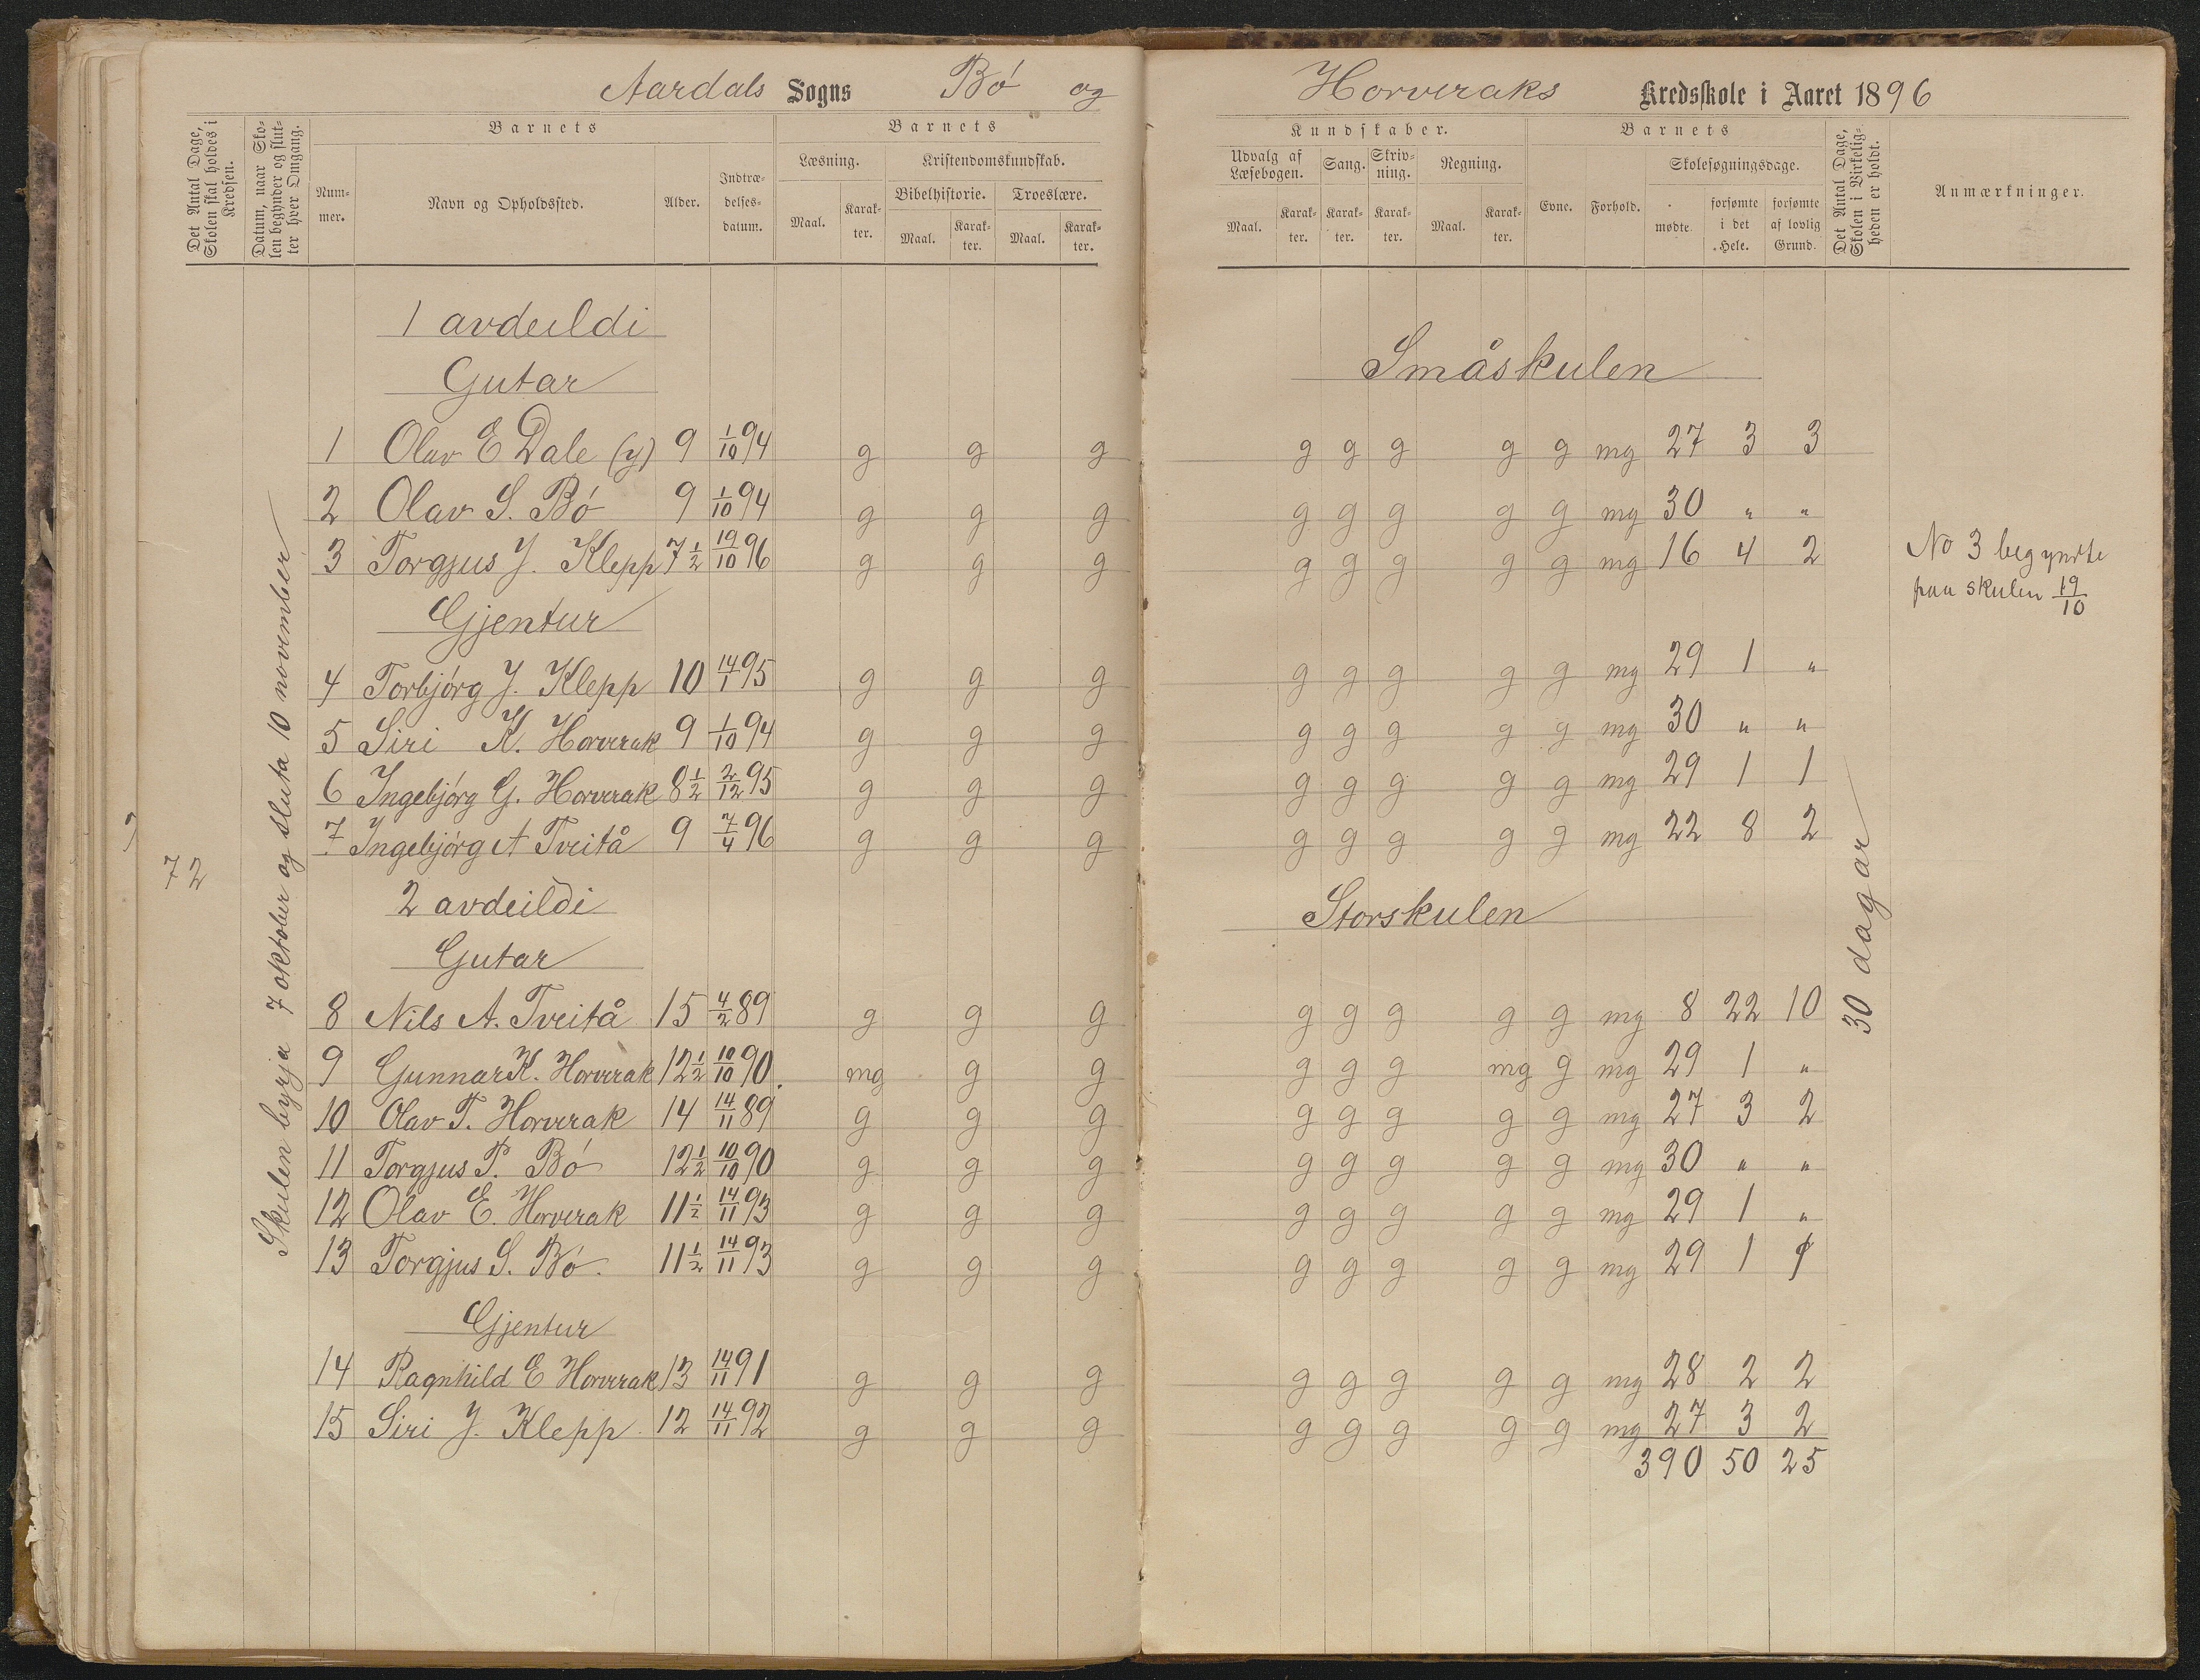 Aardals Sogns Bó og Horveraks Kredsskole i Aaret 1896
Det Antal Dage, Skolen skal holdes i Kredsen.
Datum, naar Skolen begynder og slutter hver Omgang.
Barnets
Nummer.
Navn og Opholdssted.
Alder.
Indtrædelsesdatum.
Barnets
Læsning.
Maal. Karakter.
Kristendomskundskab.
Bibelhistorie. Troeslære.
Maal. Karakter. Maal. Karakter.
Kundskaber.
Udvalg af Læsebogen. Sang. Skrivning. Regning.
Maal. Karakter. Karakter. Karakter. Maal. Karakter.
Barnets
Evne. Forhold.
Skolesøgningsdage.
mødte. forsømte i det Hele. forsømte af lovlig Grund.
Det Antal Dage, Skolen i Virkeligheden er holdt.
Anmærkninger.
72
Skulen byrja 7 oktober og sluta 10 november
1 avdeildi
Småskulen
Gutar
1 Olav E Dale (y) 9 1/10 94 g g g g g g g g mg 27 3 3
2 Olav S. Bó 9 1/10 94 g g g g g g g g mg 30 " "
3 Torgjus J. Klepp 7 1/2 19/10 96 g g g g g g g g mg 16 4 2 No 3 begynte
paa skulen 19/10
Gjentur
4 Torbjórg J. Klepp 10 14/1 95 g g g g g g g g mg 29 1 "
5 Siri K. Horverak 9 1/10 94 g g g g g g g g mg 30 " "
6 Ingebjórg G. Horverak 8 1/2 2/12 95 g g g g g g g g mg 29 1 1
7 Ingebjórg A Tveitå 9 7/4 96 g g g g g g g g mg 22 8 2
2 avdeildi
Storskulen
Gutar
8 Nils A. Tveitå 15 4/2 89 g g g g g g g g mg 8 22 10
30 dagar
9 Gunnar K. Horverak 12 1/2 10/10 90. mg g g g g g mg g mg 29 1 "
10 Olav T. Horverak 14 14/11 89 g g g g g g g g mg 27 3 2
11 Torgjus P. Bó 12 1/2 10/10 90 g g g g g g g g mg 30 " "
12 Olav E. Horverak 11 1/2 14/11 93 g g g g g g g g mg 29 1 "
13 Torgjus S. Bó. 11 1/2 14/11 93 g g g g g g g g mg 29 1 1
Gjentur
14 Ragnhild E Horverak 13 14/11 91 g g g g g g g g mg 28 2 2
15 Siri J. Klepp. 12 14/11 92 g g g g g g g g mg 27 3 2
390 50 25